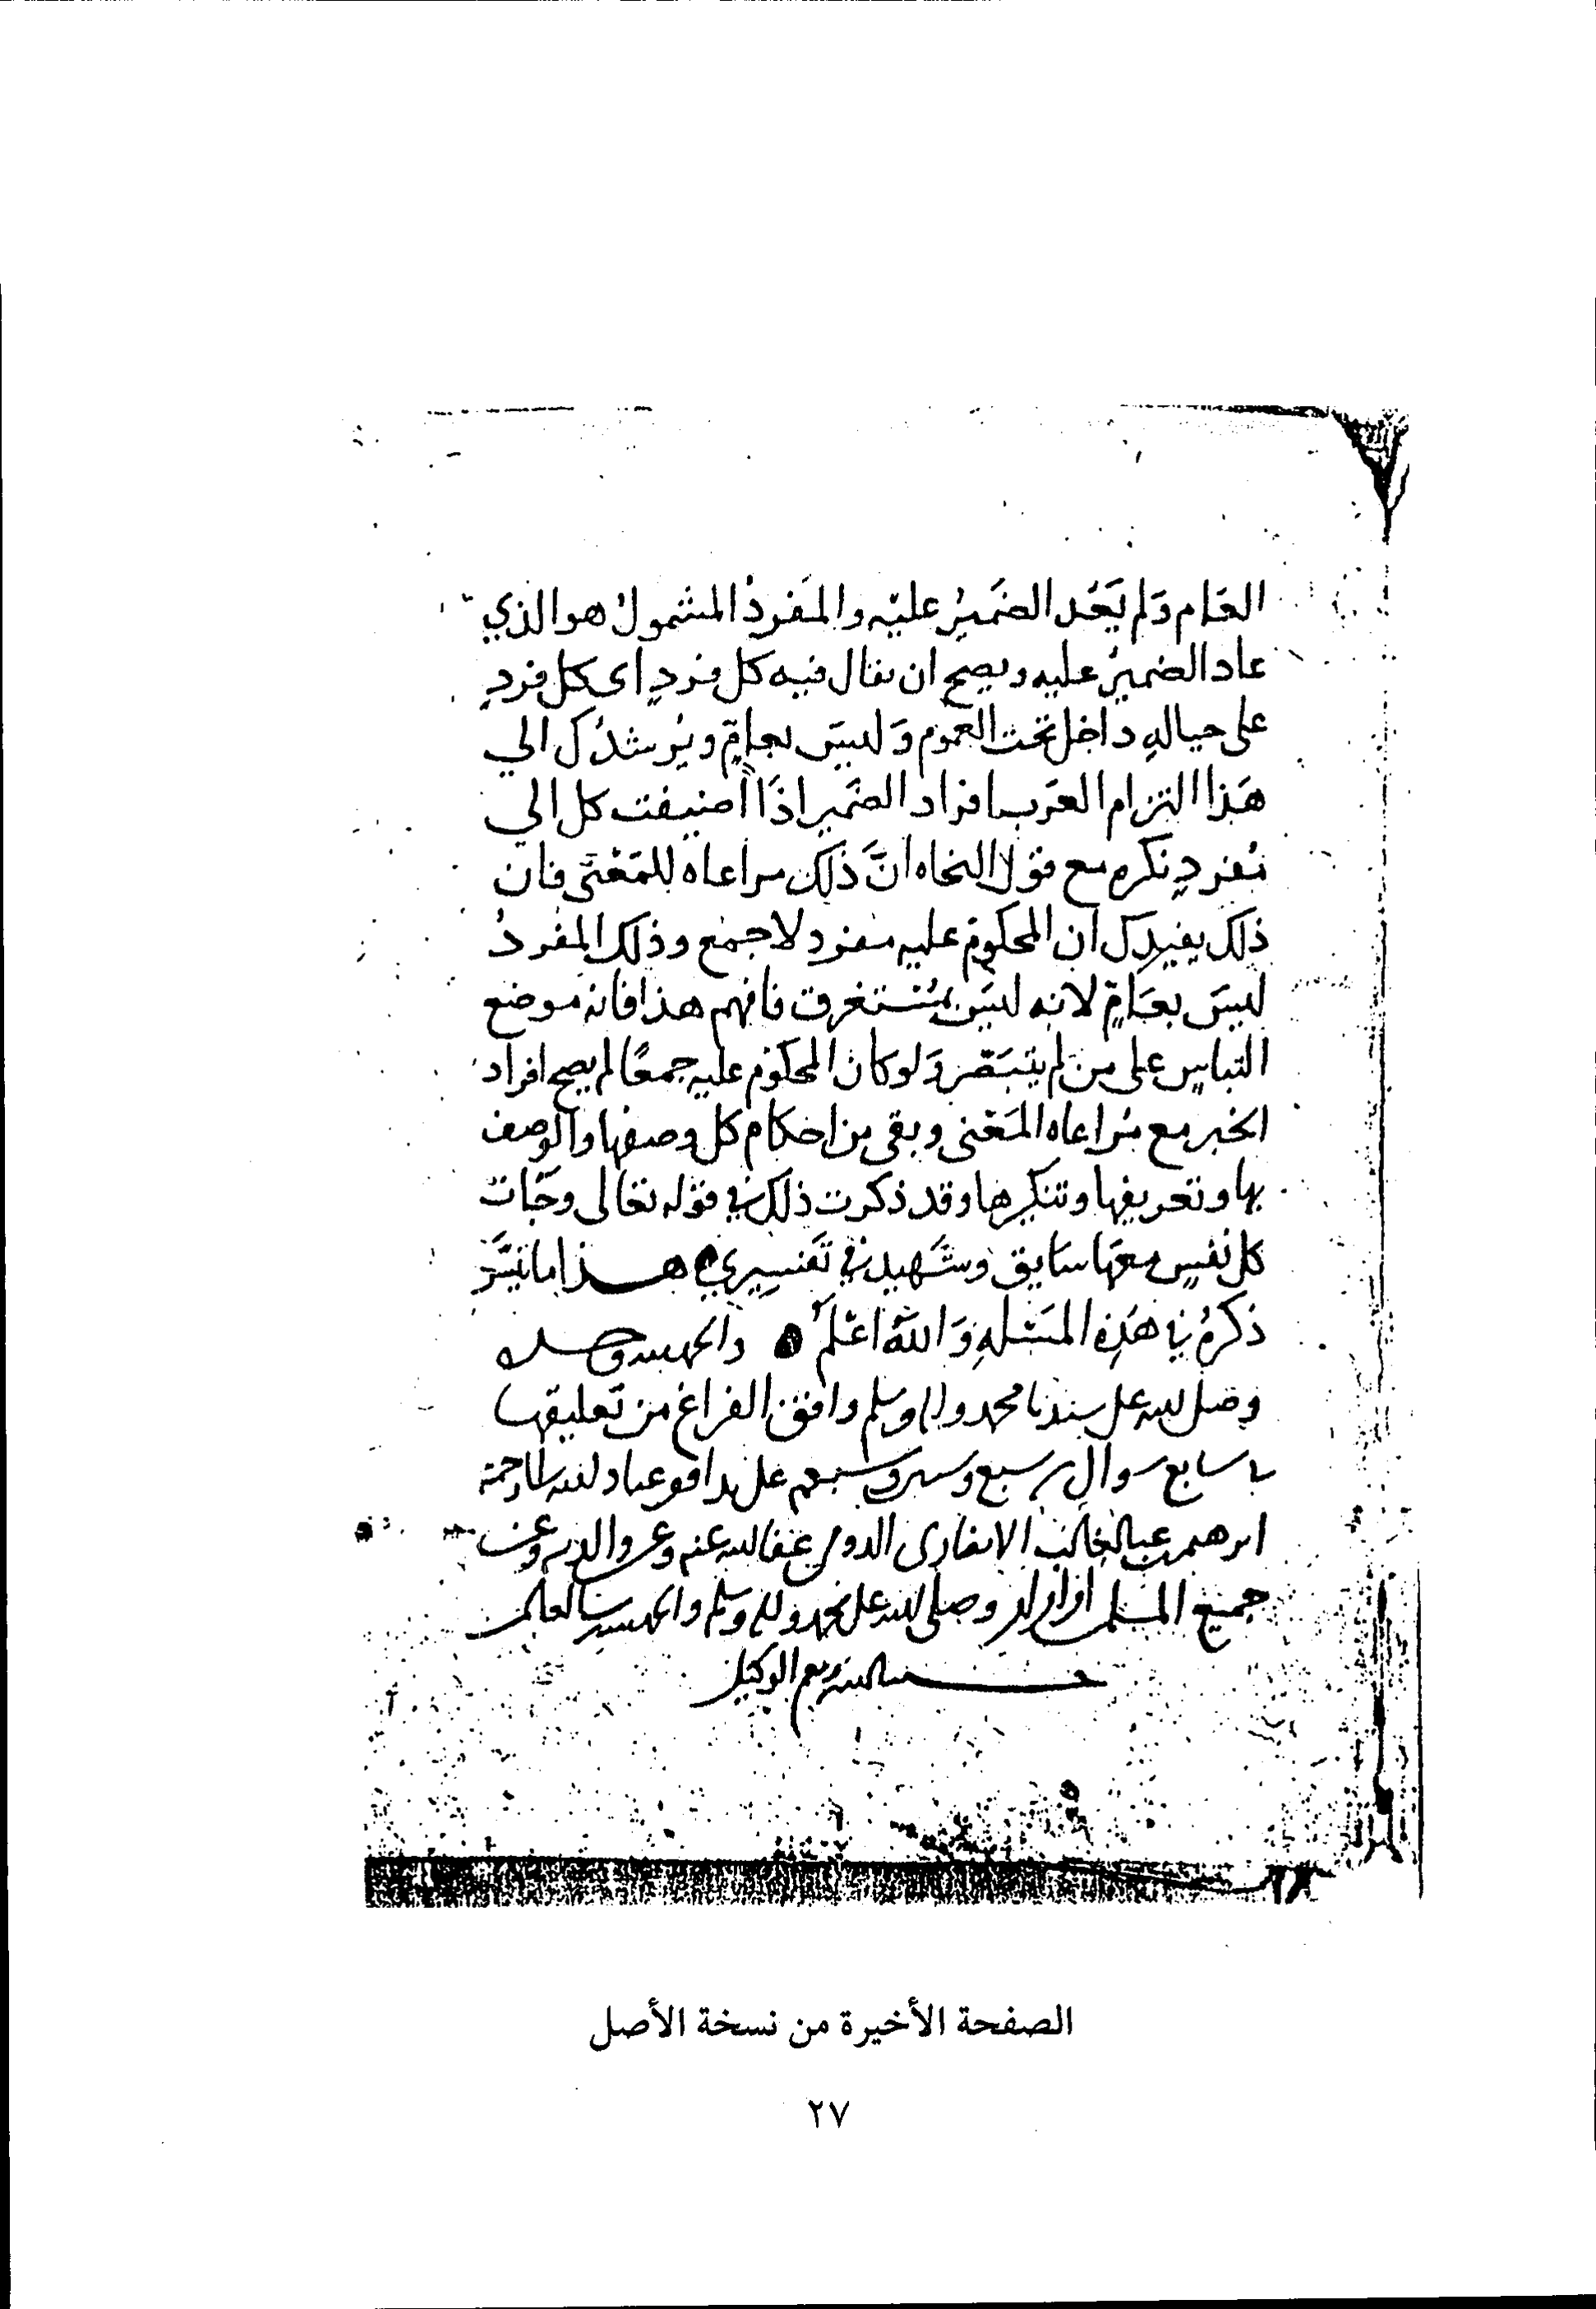 العَام وَلم يَعُد الضمَيرُ عليْه والمفردُ المشمولُ هو الذي
عاد الضميرُ عليه ويصح ان يقال فيه كل فردٍ اى كل فردٍ
على حيالهِ داخل تحت العموم وَليسَ بعامٍّ ويُرشدُك الي
هَذا التزام العرَب افراد الضمَير اذَا اُضيفت كل الي
مُفردٍ نكره مع قول النحاه انَّ ذَلك مراعاه للمَعْنَى فان
ذلك يفيدك ان المحكوم عليه مفرد لا جمع وذلك المفردُ
ليسَ بعَامٍّ لانه ليسَ بمُستغرق فافهم هذا فانه موضع
التباسٍ على من لم يتبَصّر وَلو كان المحكوم عليه جمعًا لم يصح افراد
الخبر مع مُراعاه المَعْنى وبقى من احكام كل وصفها والوصف
بها وتعريفها وتنكيرها وقد ذكرت ذلك في قوله تعَالى وجَات
كل نفسٍ معَهَا سَايق وشَهيد في تَفسِيري هـذا ما تيسَّر
ذكرهُ في هَذِه المسَئلهِ وَاللهُ اعْلم والحمد لله وحـده
وصلى الله على سيدنا محمد واله وسلم وافق الفراغ من تعليقها
سابع شوال سبع وسبعم على يد افقر عباد الله الى رحمة
ابرهيم عبد الانصارى عفا الله عنه وعن والديه وعن
جميع المسلمين وصلى الله على محمد واله وسلم والحمد لله رب العالمين
حسـبنا الله ونعم الوكيل
الصفحة الأخيرة من نسخة الأصل
٢٧